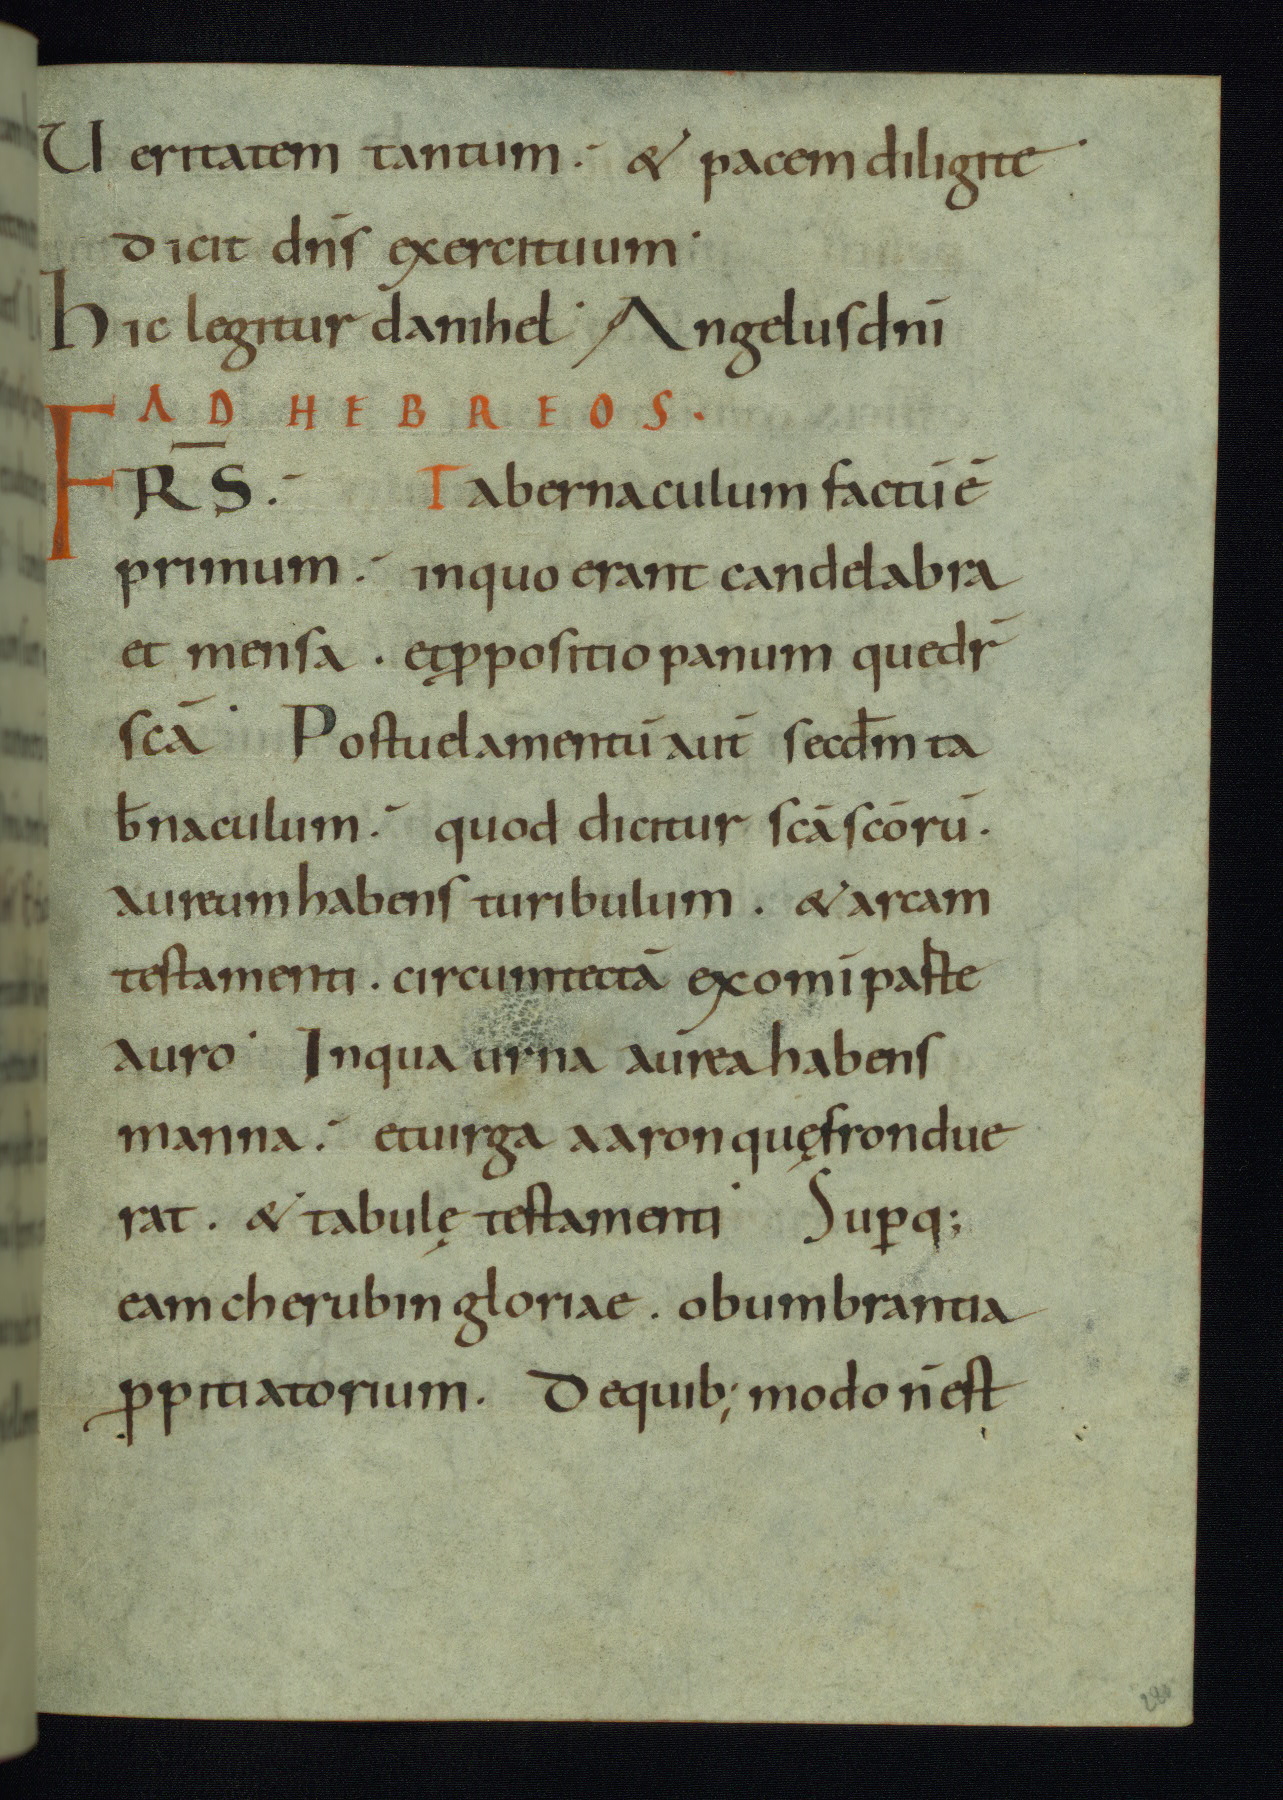 Ueritatem tantum. & pacem diligite
dicit dñs exercituum
hic legitur danihel Angelus dñi
AD HEBREOS.
FR̄S. Tabernaculum factū ē
primum. inquo erant candelabra
et mensa. et ꝓpositio panum quedr̄
scā Postuelamentū aut̄ secdm̄ ta
b̄naculum. quod dicitur scā scōrū.
aureum habens turibulum. & arcam
testamenti. circumtectā exomī paꝛte
auro Inqua urna aurea habens
manna. etuirga aaron quę frondue
rat. & tabulę testamenti Suꝑq;
eam cherubin gloriae. obumbrantia
ꝓpitiatorium. Dequib; modo n̄ est